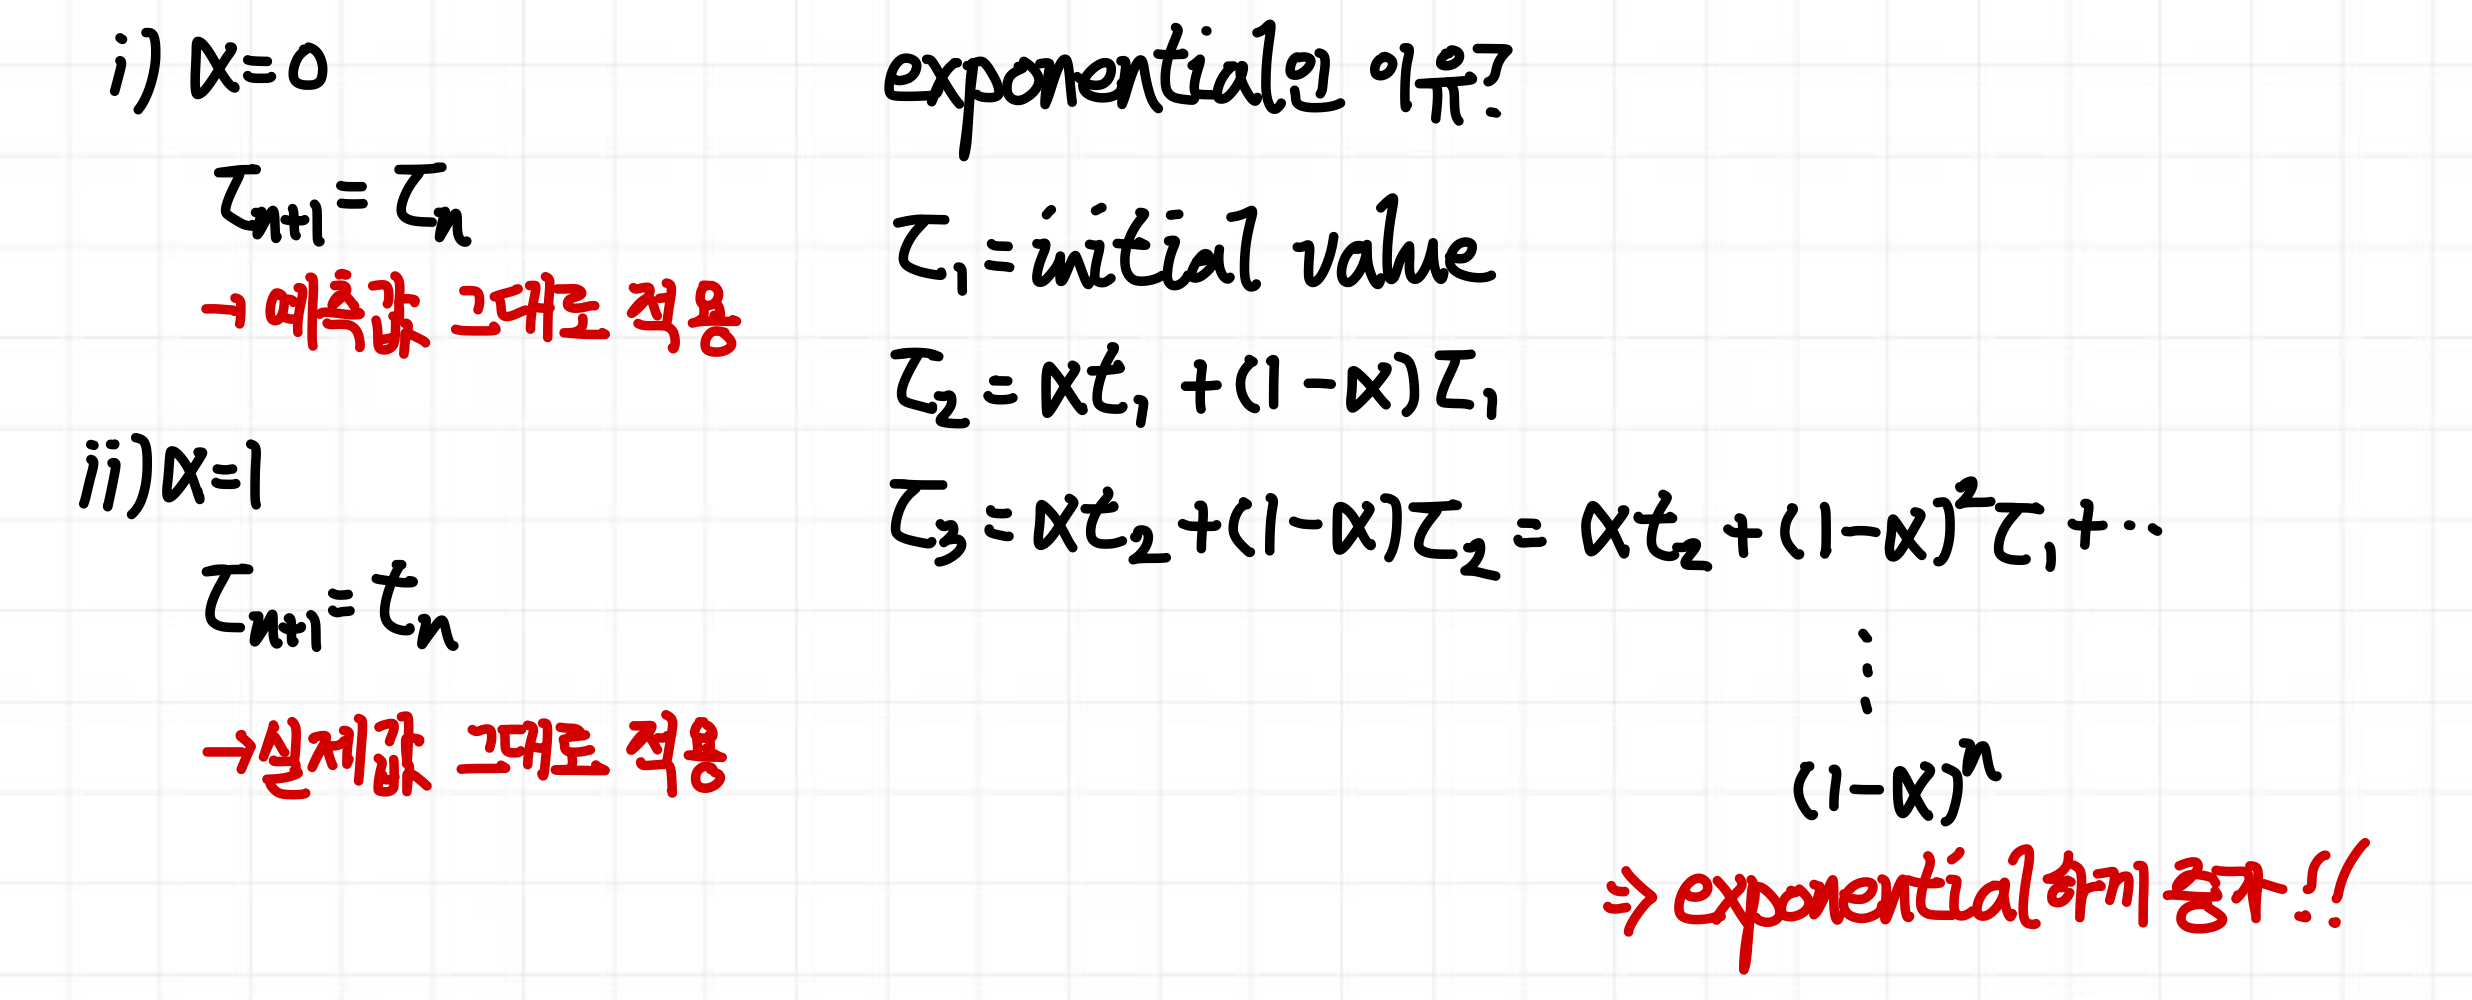 i) α=0
τₙ₊₁ = τₙ
→ 예측값 그대로 적용
ii) α=1
τₙ₊₁ = tₙ
→ 실제값 그대로 적용
exponential인 이유?
τ₁ = initial value
τ₂ = αt₁ + (1-α)τ₁
τ₃ = αt₂ + (1-α)τ₂ = αt₂ + (1-α)²τ₁ + ··
⋮
(1-α)ⁿ
⇒ exponential하게 증가!!